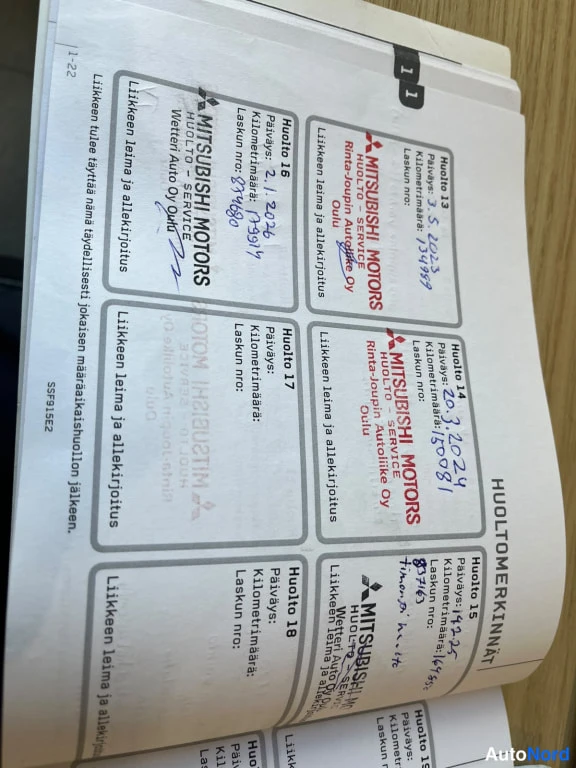 HUOLTOMERKINNÄT
1
1
Huolto 13
Päiväys: 3.5.2023
Kilometrimäärä: 134999
Laskun nro:
MITSUBISHI MOTORS
HUOLTO - SERVICE
Rinta-Joupin Autoliike Oy
Oulu
Liikkeen leima ja allekirjoitus
Huolto 14
Päiväys: 20.3.2024
Kilometrimäärä: 150081
Laskun nro:
MITSUBISHI MOTORS
HUOLTO - SERVICE
Rinta-Joupin Autoliike Oy
Oulu
Liikkeen leima ja allekirjoitus
Huolto 15
Päiväys:
Kilometrimäärä:
Laskun nro:
837163
MITSUBISHI
HUOLTO - SERV
Wetteri Auto Oy
Liikkeen leima ja allekirj
Huolto 16
Päiväys: 2.1.2026
Kilometrimäärä:
Laskun nro:
MITSUBISHI MOTORS
HUOLTO - SERVICE
Wetteri Auto Oy Oulu
Liikkeen leima ja allekirjoitus
Huolto 17
Päiväys:
Kilometrimäärä:
Laskun nro:
Liikkeen leima ja allekirjoitus
Huolto 18
Päiväys:
Kilometrimäärä:
Laskun nro:
Liikkeen leima ja allekirjoitus
Huolto 19
Päiväys
Kilometri
Laskun
Liikk
Huol
Päiv
Kilo
Las
Lii
Liikkeen tulee täyttää nämä täydellisesti jokaisen määräaikaishuollon jälkeen.
1-22
SSF915E2
AutoNord